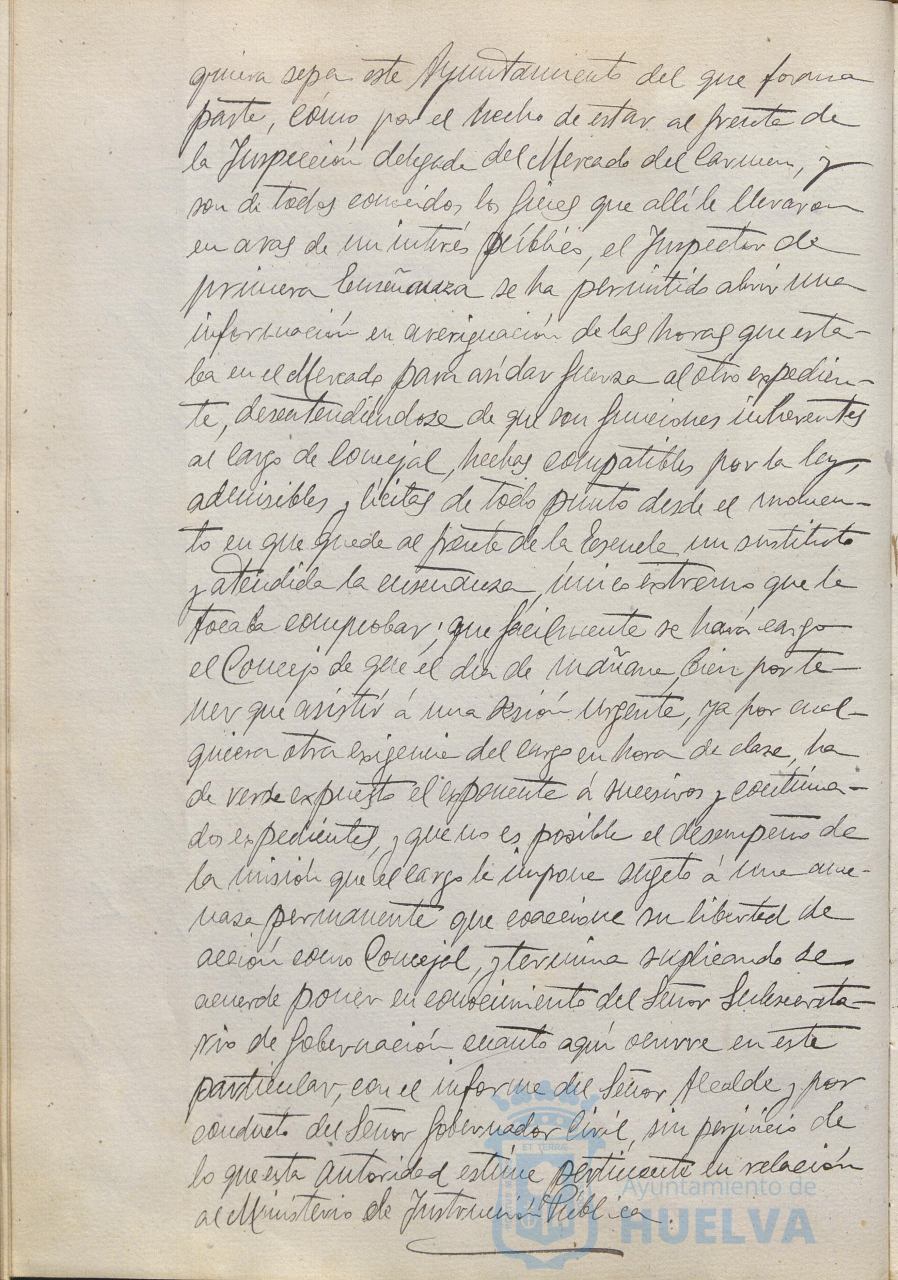 quiera sepa este Ayuntamiento del que forma
parte, cómo por el hecho de estar al frente de
la Inspección delegada del Mercado del Carmen, y
son de todos conocidos los fines que allí le llevaron
en aras de un interés público, el Inspector de
primera Enseñanza se ha permitido abrir una
información en averiguación de las horas que esta-
ba en el Mercado para así dar fuerza al otro expedien-
te, desentendiéndose de que son funciones inherentes
al cargo de Concejal, hechas compatibles por la ley,
admisibles y lícitas de todo punto desde el momen-
to en que quede al frente de la Escuela un sustituto
y atendida la enseñanza, único extremo que le
tocaba comprobar; que fácilmente se hará cargo
el Concejo de que el día de mañana, bien por te-
ner que asistir á una sesión urgente, ya por cual-
quiera otra exigencia del cargo en hora de clase, ha
de verse expuesto el exponente á sucesivos y continua-
dos expedientes, y que no es posible el desempeño de
la misión que el cargo le impone sugeto á una ame-
nasa permanente que coaccione su libertad de
acción como Concejal, y termina suplicando se
acuerde poner en conocimiento del Señor Subsecreta-
rio de Gobernación cuanto aquí ocurre en este
particular, con el informe del Señor Alcalde y por
conducto del Señor Gobernador Civil, sin perjuicio de
lo que esta autoridad estime pertinente en relación
al Ministerio de Instrucción Pública.
Ayuntamiento de
HUELVA